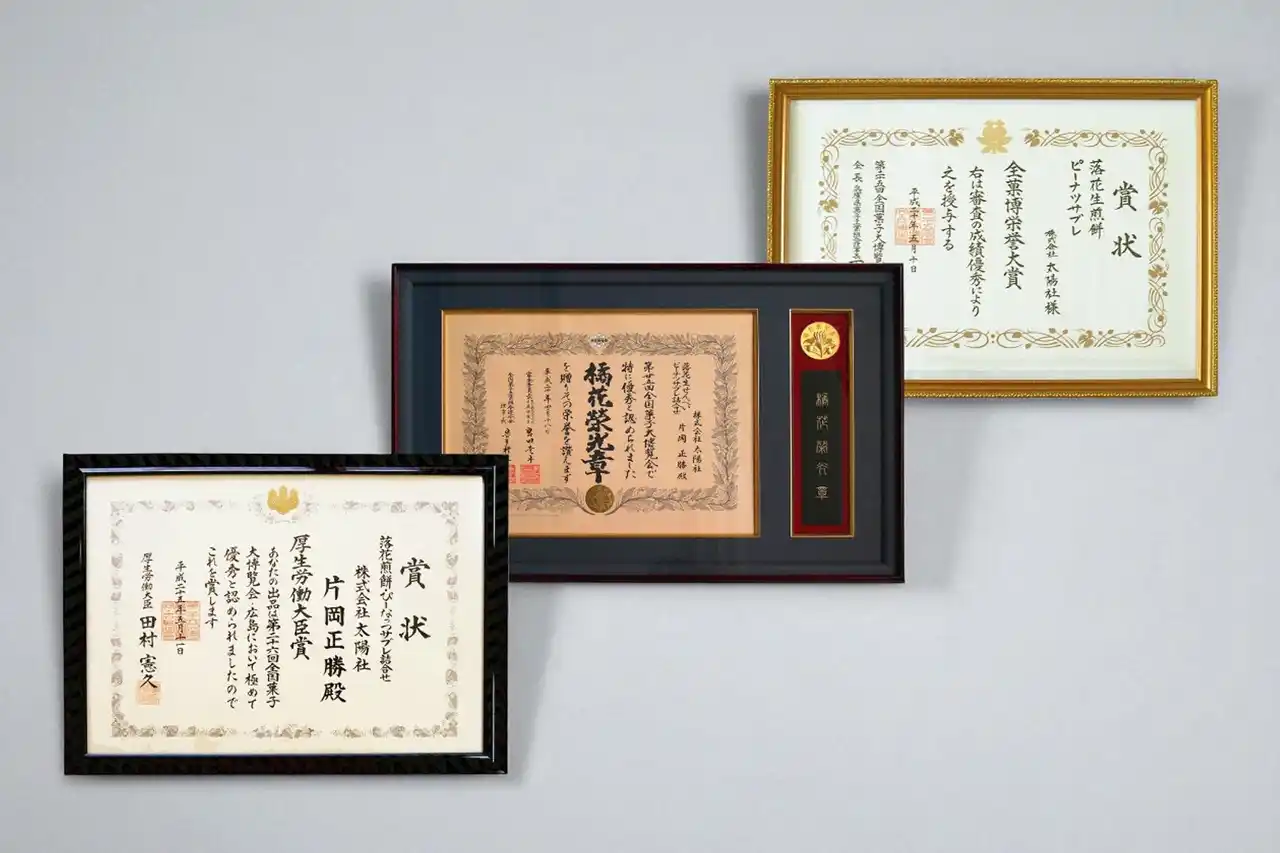 賞状
落花生煎餅
ピーナツサブレ
株式会社 太陽社 様
全菓博栄誉大賞
右は審査の成績優秀により
之を授与する
平成二十年五月十日
第二十五回全国菓子大博覧
会長
落花生せんべい
ピーナツサブレ詰合せ
株式会社 太陽社
片岡 正勝 殿
第廿五回全国菓子大博覧会で
特に優秀と認められました
橘花榮光章
を贈りその栄誉を讃えます
橘花榮光章
賞状
落花煎餅・ぴーなっつサブレ詰合せ
株式会社 太陽社
片岡正勝殿
厚生労働大臣賞
あなたの出品は第二十六回全国菓子
大博覧会・広島において極めて
優秀と認められましたので
これを賞します
平成二十五年五月十一日
厚生労働大臣 田村 憲久